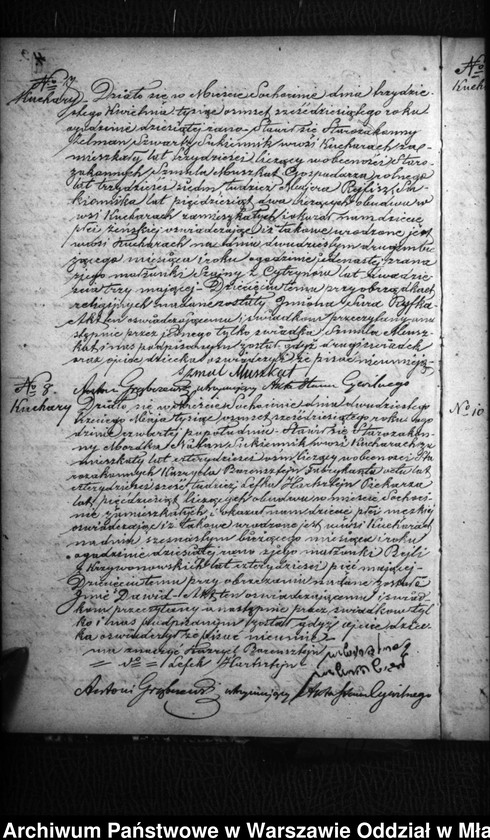 No 7.
Kuchary. Działo się w Mieście Sochocinie dnia trzydzie
stego Kwietnia tysiąc ośmset sześćdziesiątego roku
o godzinie dziesiątej rano. Stawił się Starozakonny
Zelman Szwarts Sukiennik w wsi Kucharach za
mieszkały lat trzydzieści liczący w obecności Staro
zakonnych Szmula Muszkat Gospodarza rolnego
lat trzydzieści siedm tudzież
lat pięćdziesiąt dwa liczących obudwu w
wsi Kucharach zamieszkałych i okazał nam dziecię
płci żeńskiej oświadczając iż takowe urodzone jest
w wsi Kucharach na dniu dwudziestym drugim bie
żącego miesiąca i roku o godzinie jedenastej z rana
z jego małżonki Szajny z Cytrynów lat dwadzie
ścia trzy mającej. Dziecięciu temu przy obrządkach
religijnych nadane zostały Imiona Sura Ryfka.
Akt ten oświadczającemu i świadkom przeczytany a na
stępnie przez jednego tylko świadka Szmula Musz
kat i nas podpisanym został gdyż drugi świadek
oraz ojciec dziecka oświadczyli że pisać nieumieją.
Szmul Muszkat
Antoni utrzymujący Akta Stanu Cywilnego
No 8.
Kuchary Działo się w Mieście Sochocinie dnia dwudziestego
trzeciego Maja tysiąc ośmset sześćdziesiątego roku o go
dzinie czwartej po południu. Stawił się Starozakon
ny Mordka Nathan Sukiennik w wsi Kucharach za
mieszkały lat czterdzieści ośm liczący w obecności Sta
rozakonnych Barensztejn Fabrykanta octu lat
czterdzieści sześć tudzież Lefka Hartsztejn Piekarza
lat pięćdziesiąt liczących obudwu w mieście Sochoci
nie zamieszkałych i okazał nam dziecię płci męzkiej
oświadczając iż takowe urodzone jest w wsi Kucharach
na dniu szesnastym bieżącego miesiąca i roku
o godzinie dziesiątej rano z jego małżonki Rejli
z Krzywonowskich lat czterdzieści pięć mającej.
Dziecięciu temu przy obrzezaniu nadane zostało
Imię Dawid. Akt ten oświadczającemu i świad
kom przeczytany a następnie przez świadków tyl
ko i nas podpisanym został gdyż ojciec dziec
ka oświadczył że pisać nieumie.
ma znaczyć Barensztejn
Lefek Hartsztejn
Antoni utrzymujący Akta Stanu Cywilnego
No
Kuch
No 10
Archiwum Państwowe w Warszawie Oddział w Mła